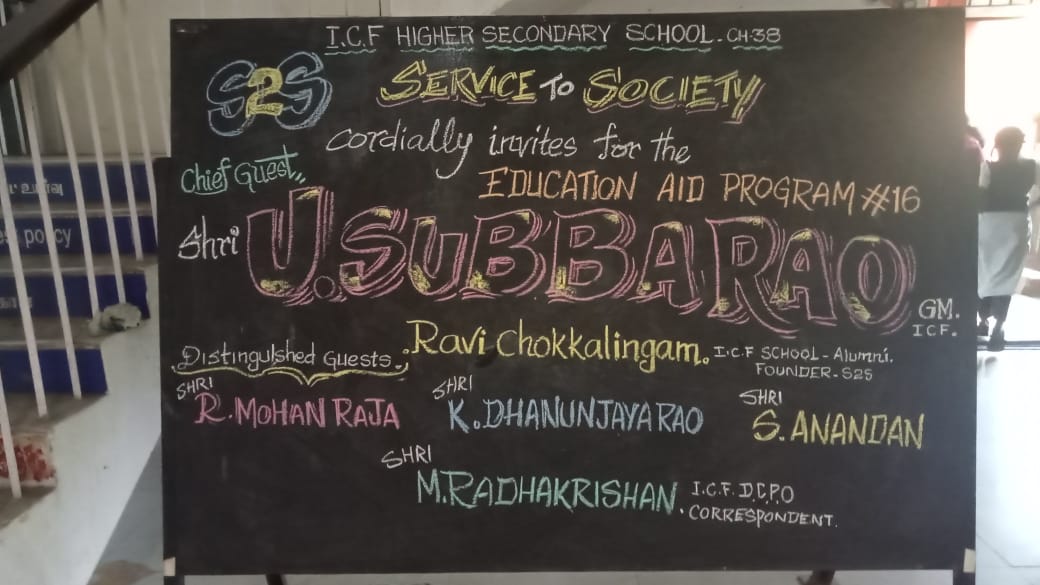 I.C.F HIGHER SECONDARY SCHOOL - CH-38
S2S SERVICE TO SOCIETY
cordially invites for the
Chief Guest,,
EDUCATION AID PROGRAM #16
Shri U.SUBBA RAO GM.
ICF.
Distinguished Guests. Ravi Chokkalingam. I.C.F SCHOOL - Alumni.
FOUNDER - S2S
SHRI R.MOHAN RAJA
SHRI K.DHANUNJAYA RAO
SHRI S.ANANDAN
SHRI M.RADHAKRISHAN. I.C.F. D.C.P.O
CORRESPONDENT.